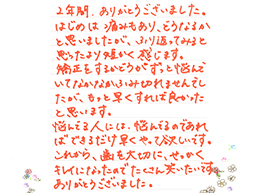 2年間、ありがとうございました。
はじめは痛みもあり、どうなるか
と思いましたが、ふり返ってみると
思ったより短かく感じます。
矯正をするかどうかずっと悩んで
いてなかなかふみ切れませんでし
たが、もっと早くすれば良かった
と思います。
悩んでる人には、悩んでるのであれ
ばできるだけ早くやって欲しいです。
これから、歯を大切に、せっかく
キレイになったのでたくさん笑いたいです。
ありがとうございました。